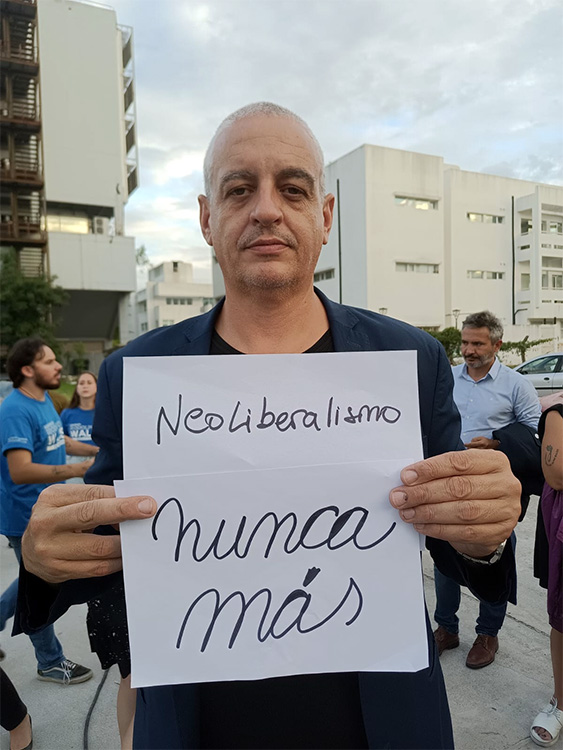 NeoLiberalismo
nunca
más